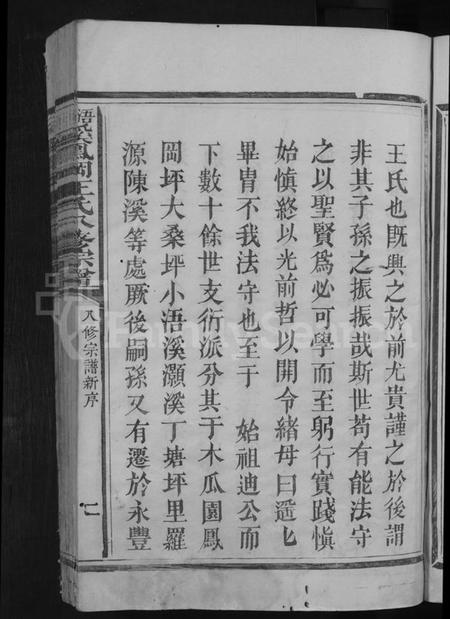 王氏也既興之於前尤貴謹之於後謂
非其子孫之振振哉斯世苟有能法守
之以聖賢為必可學而至躬行實踐慎
始慎終以光前哲以開令緒毋曰遥乜
畢胄不我法守也至于 始祖迪公而
下數十餘世支衍派分其于木瓜園鳳
岡坪大桑坪小浯溪灝溪丁塘坪里羅
源陳溪等處厥後嗣孫又有遷於永豐
浯溪鳳岡王氏八修宗譜
八修宗譜新序
二
FamilySearch